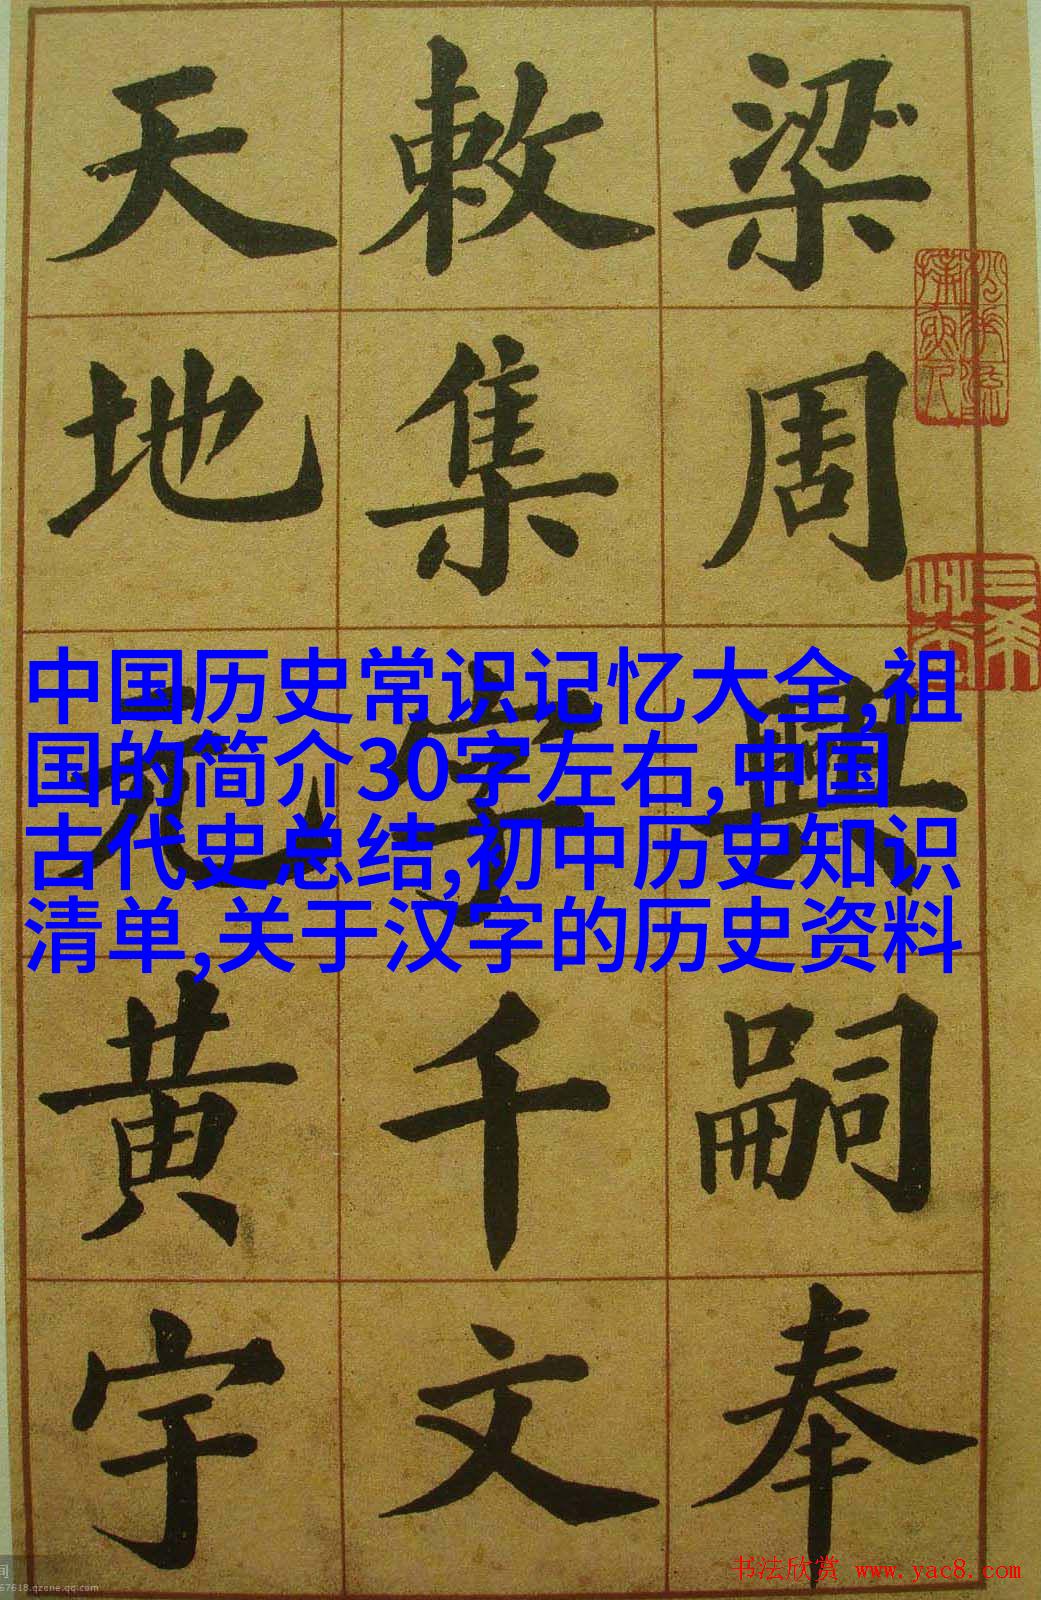 梁周興嗣奉
敕集字千文
天地元黄宇
中国历史常识记忆大全,祖
国的简介30字左右,中国
古代史总结,初中历史知识
清单,关于汉字的历史资料
书法欣赏 www.yac8.com
间
67618.qzone.qq.com